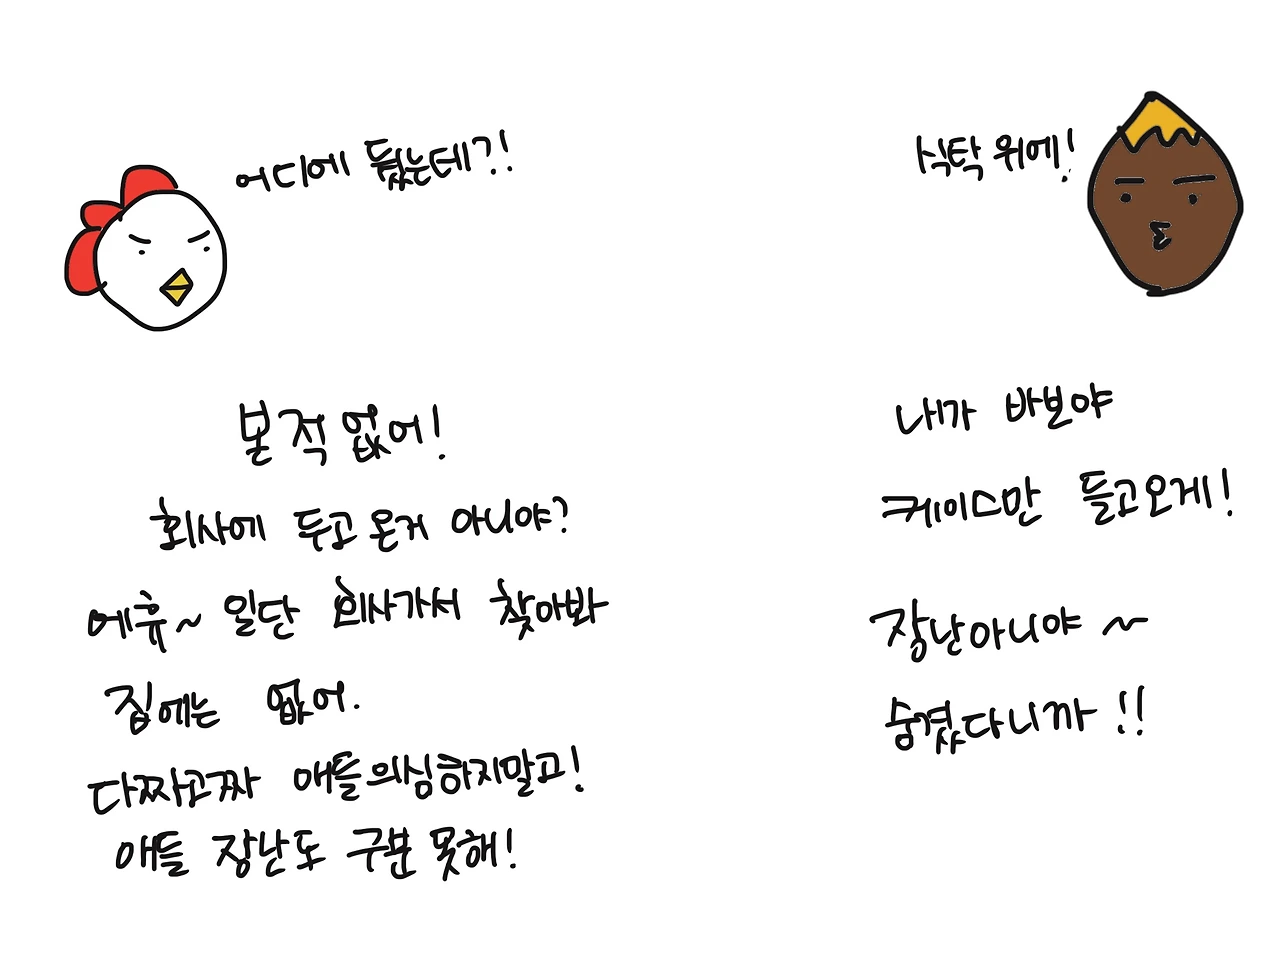 어디에 뒀는데?!
식탁 위에!
본 적 없어!
내가 바보야
회사에 두고 온거 아니야?
케이스만 들고오게!
에휴~ 일단 회사가서 찾아봐
집에는 없어.
장난아니야~
숨겼다니까!!
다짜고짜 애들의심하지말고!
애들 장난도 구분 못해!